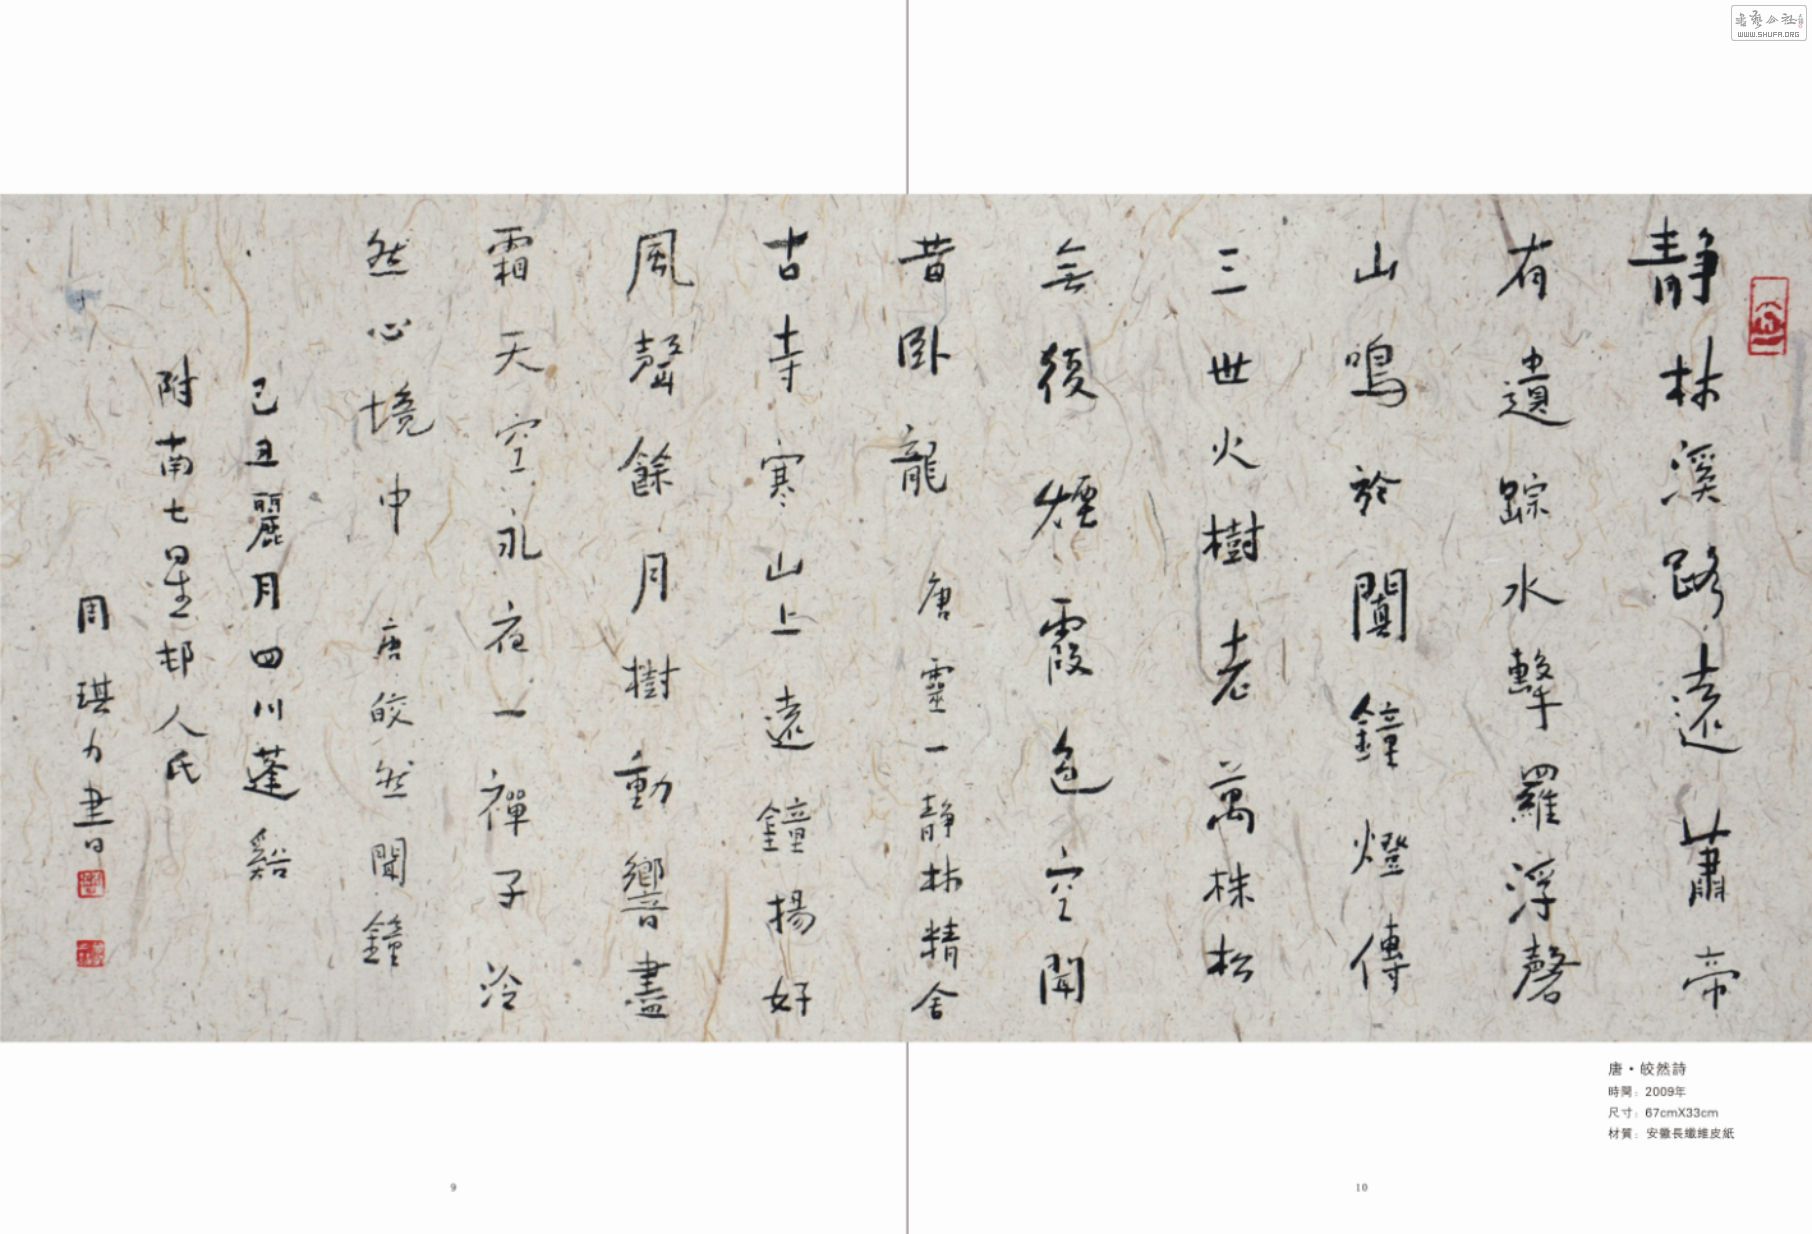 静林溪路遠蕭帝
有遺踪水擊羅浮磬
山鳴於闐鐘燈傳
三世火樹老萬株松
無復煙霞色空聞
昔卧龍 唐靈一静林精舍
古寺寒山上遠鐘揚好
風聲餘月樹動響盡
霜天空永夜一禪子冷
然心境中 唐皎然聞鐘
己丑麗月四川蓬谿
附南七星邨人氏
周琪力書
唐·皎然詩
時間：2009年
尺寸：67cmX33cm
材質：安徽長纖維皮紙
9
10
WWW.SHUFA.ORG